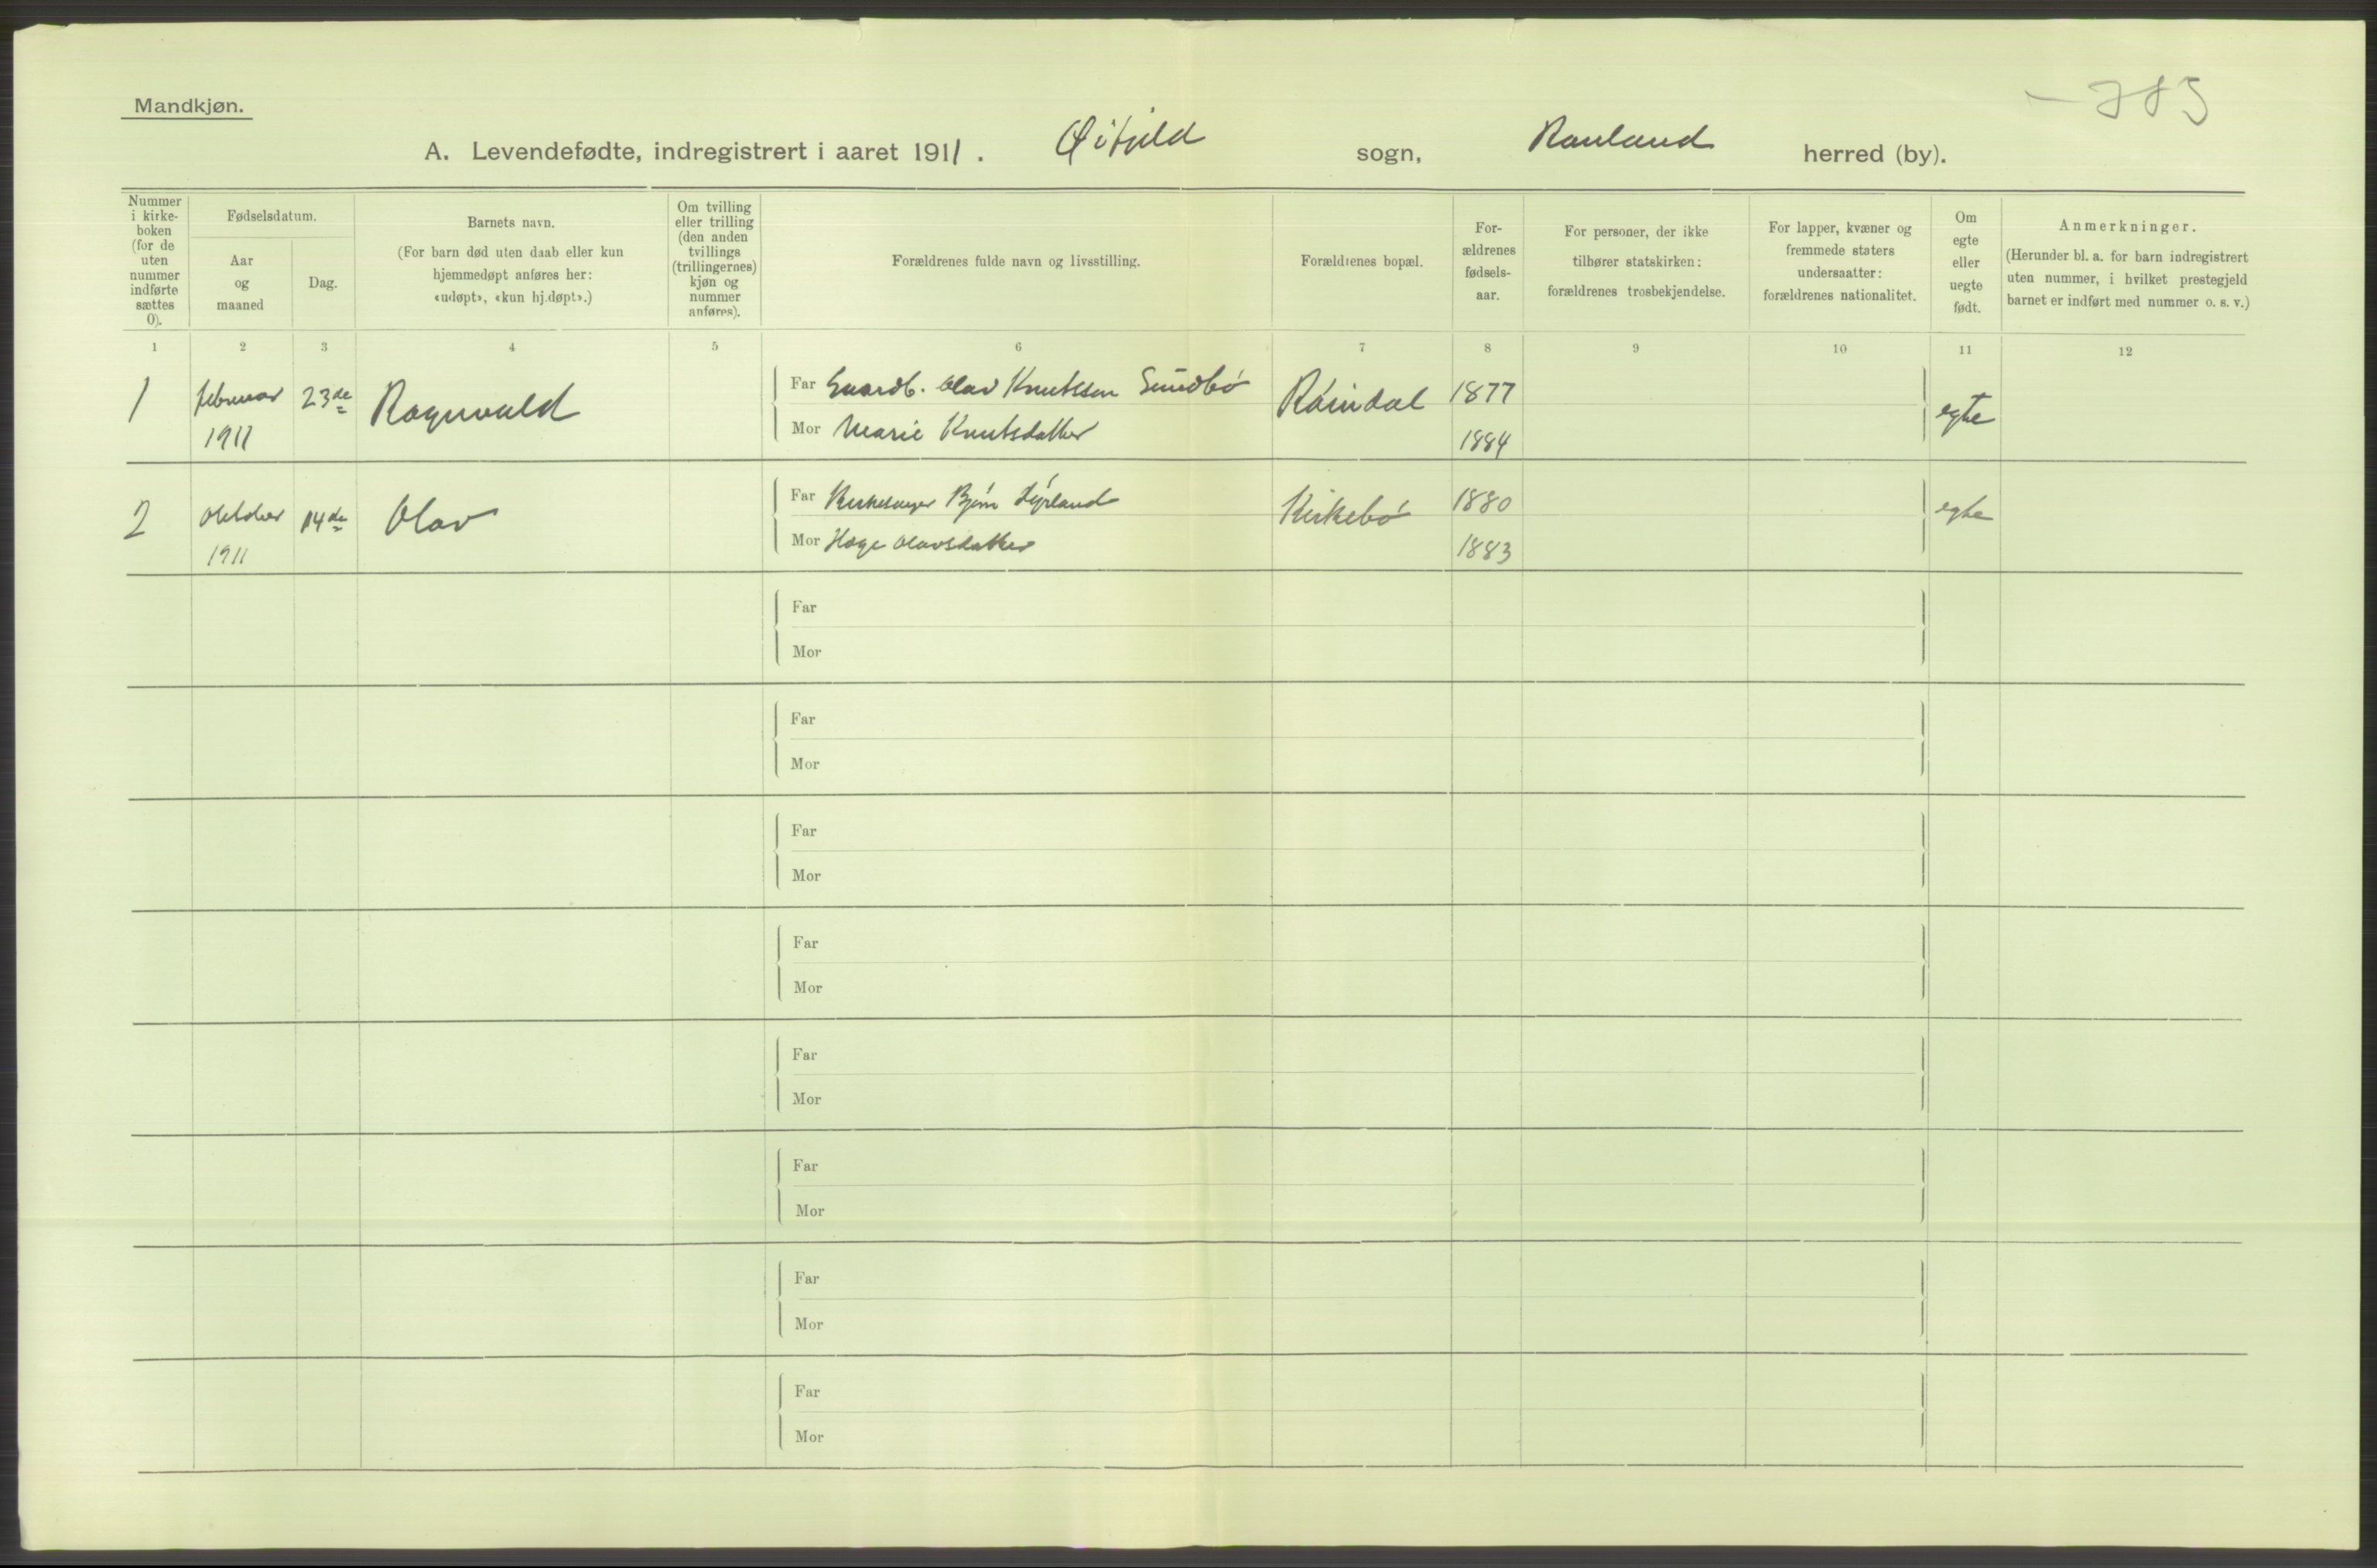 Mandkjøn.
A. Levendefødte, indregistrert i aaret 1911. Øifjeld sogn, Rauland herred (by).
Nummer i kirke-boken (for de uten nummer indførte sættes 0).
Fødselsdatum.
Aar og maaned
Dag.
Barnets navn.
(For barn død uten daab eller kun hjemmedøpt anføres her: «udøpt», «kun hj.døpt».)
Om tvilling eller trilling (den anden tvillings (trillingernes) kjøn og nummer anføres).
Forældrenes fulde navn og livsstilling.
Forældrenes bopæl.
For-ældrenes fødsels-aar.
For personer, der ikke tilhører statskirken: forældrenes trosbekjendelse.
For lapper, kvæner og fremmede staters undersaatter: forældrenes nationalitet.
Om egte eller uegte født.
Anmerkninger.
(Herunder bl. a. for barn indregistrert uten nummer, i hvilket prestegjeld barnet er indført med nummer o. s. v.)
1 2 3 4 5 6 7 8 9 10 11 12
1 februar 23de Ragnvald Far Gaardb. Olav Knutsson Sundbó Róindal 1877 egte
1911 Mor Marie Knutsdatter 1884
2 Oktober 14de Olav Far Kirkesanger Bjórn Kirkebó 1880 egte
1911 Mor Hæge Olavsdatter 1883
Far
Mor
Far
Mor
Far
Mor
Far
Mor
Far
Mor
Far
Mor
Far
Mor
Far
Mor